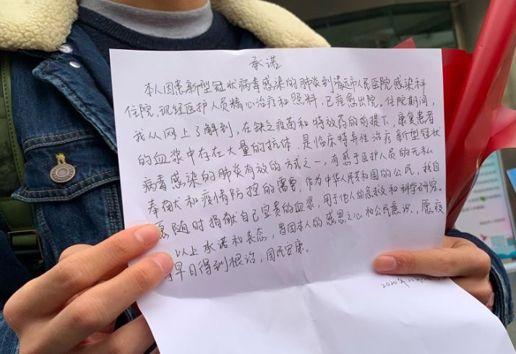 承诺
本人因患新型冠状病毒感染的肺炎到清远市人民医院感染科
住院,现经医护人员精心治疗和照料,已痊愈出院,住院期间,
我从网上了解到,在缺乏疫苗和特效药的前提下,康复患者
的血浆中存在大量的抗体,是临床特异性治疗新型冠状
病毒感染的肺炎有效的方式之一,有感于医护人员的无私
奉献和疫情防控的需要,作为中华人民共和国的公民,我自
愿随时捐献自己宝贵的血浆,用于他人的急救和科学研究。
以上承诺和表态,是因本人的感恩之心和公民意识,愿疫
早日得到根治,国泰民康。
2020年